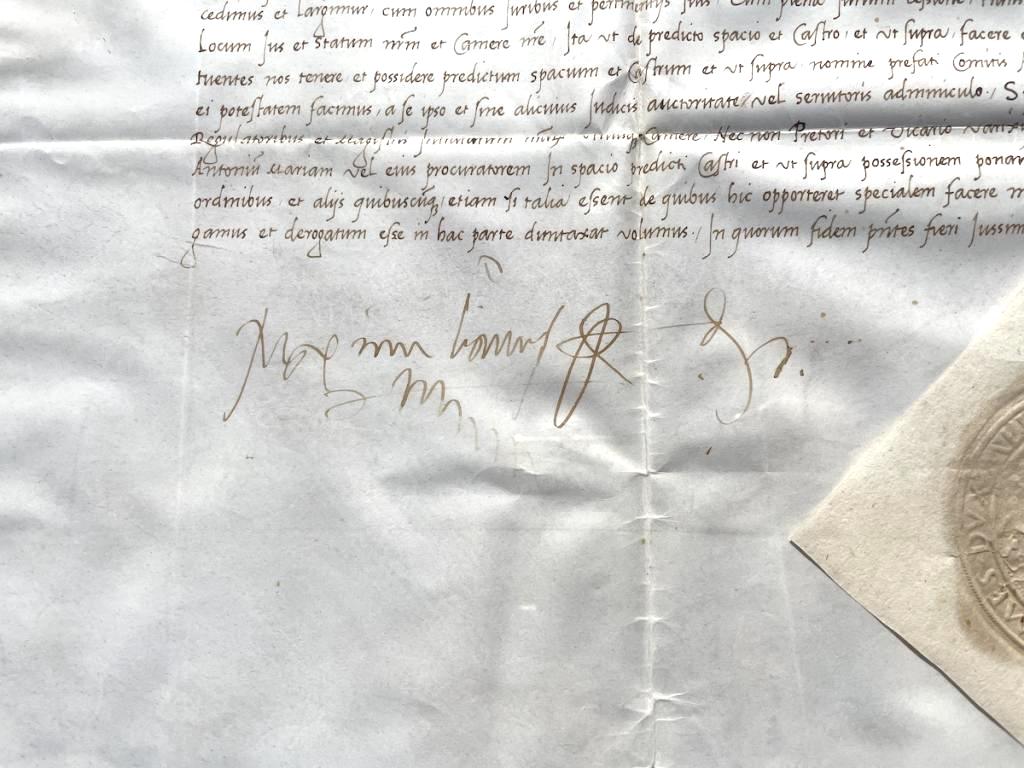 cedimus et Largimur, cum omnibus Juribus et pertinentijs suis
Locum Jus et statum nr̃m et Camere nr̃e, Ita ut de predicto spacio et Castro, et ut supra, facere
tuentes nos tenere et possidere predictum spacium et Castrum et ut supra nomine prefati Comitis
ei potestatem facimus, a se ipso et sine alicuius Judicis auctoritate, vel seruitoris adminiculo.
Regulatoribus et Magistris Camere, Nec non Pretori et Vicario
Antoniũ Mariam vel eius procuratorem In spacio predicti Castri et ut supra possessionem
ordinibus et alijs quibuscũq, etiam si talia essent de quibus hic opporteret specialem facere
gamus et derogatum esse in hac parte duntaxat volumus. In quorum fidem pñtes fieri Jussim
Maximilianus
DUX